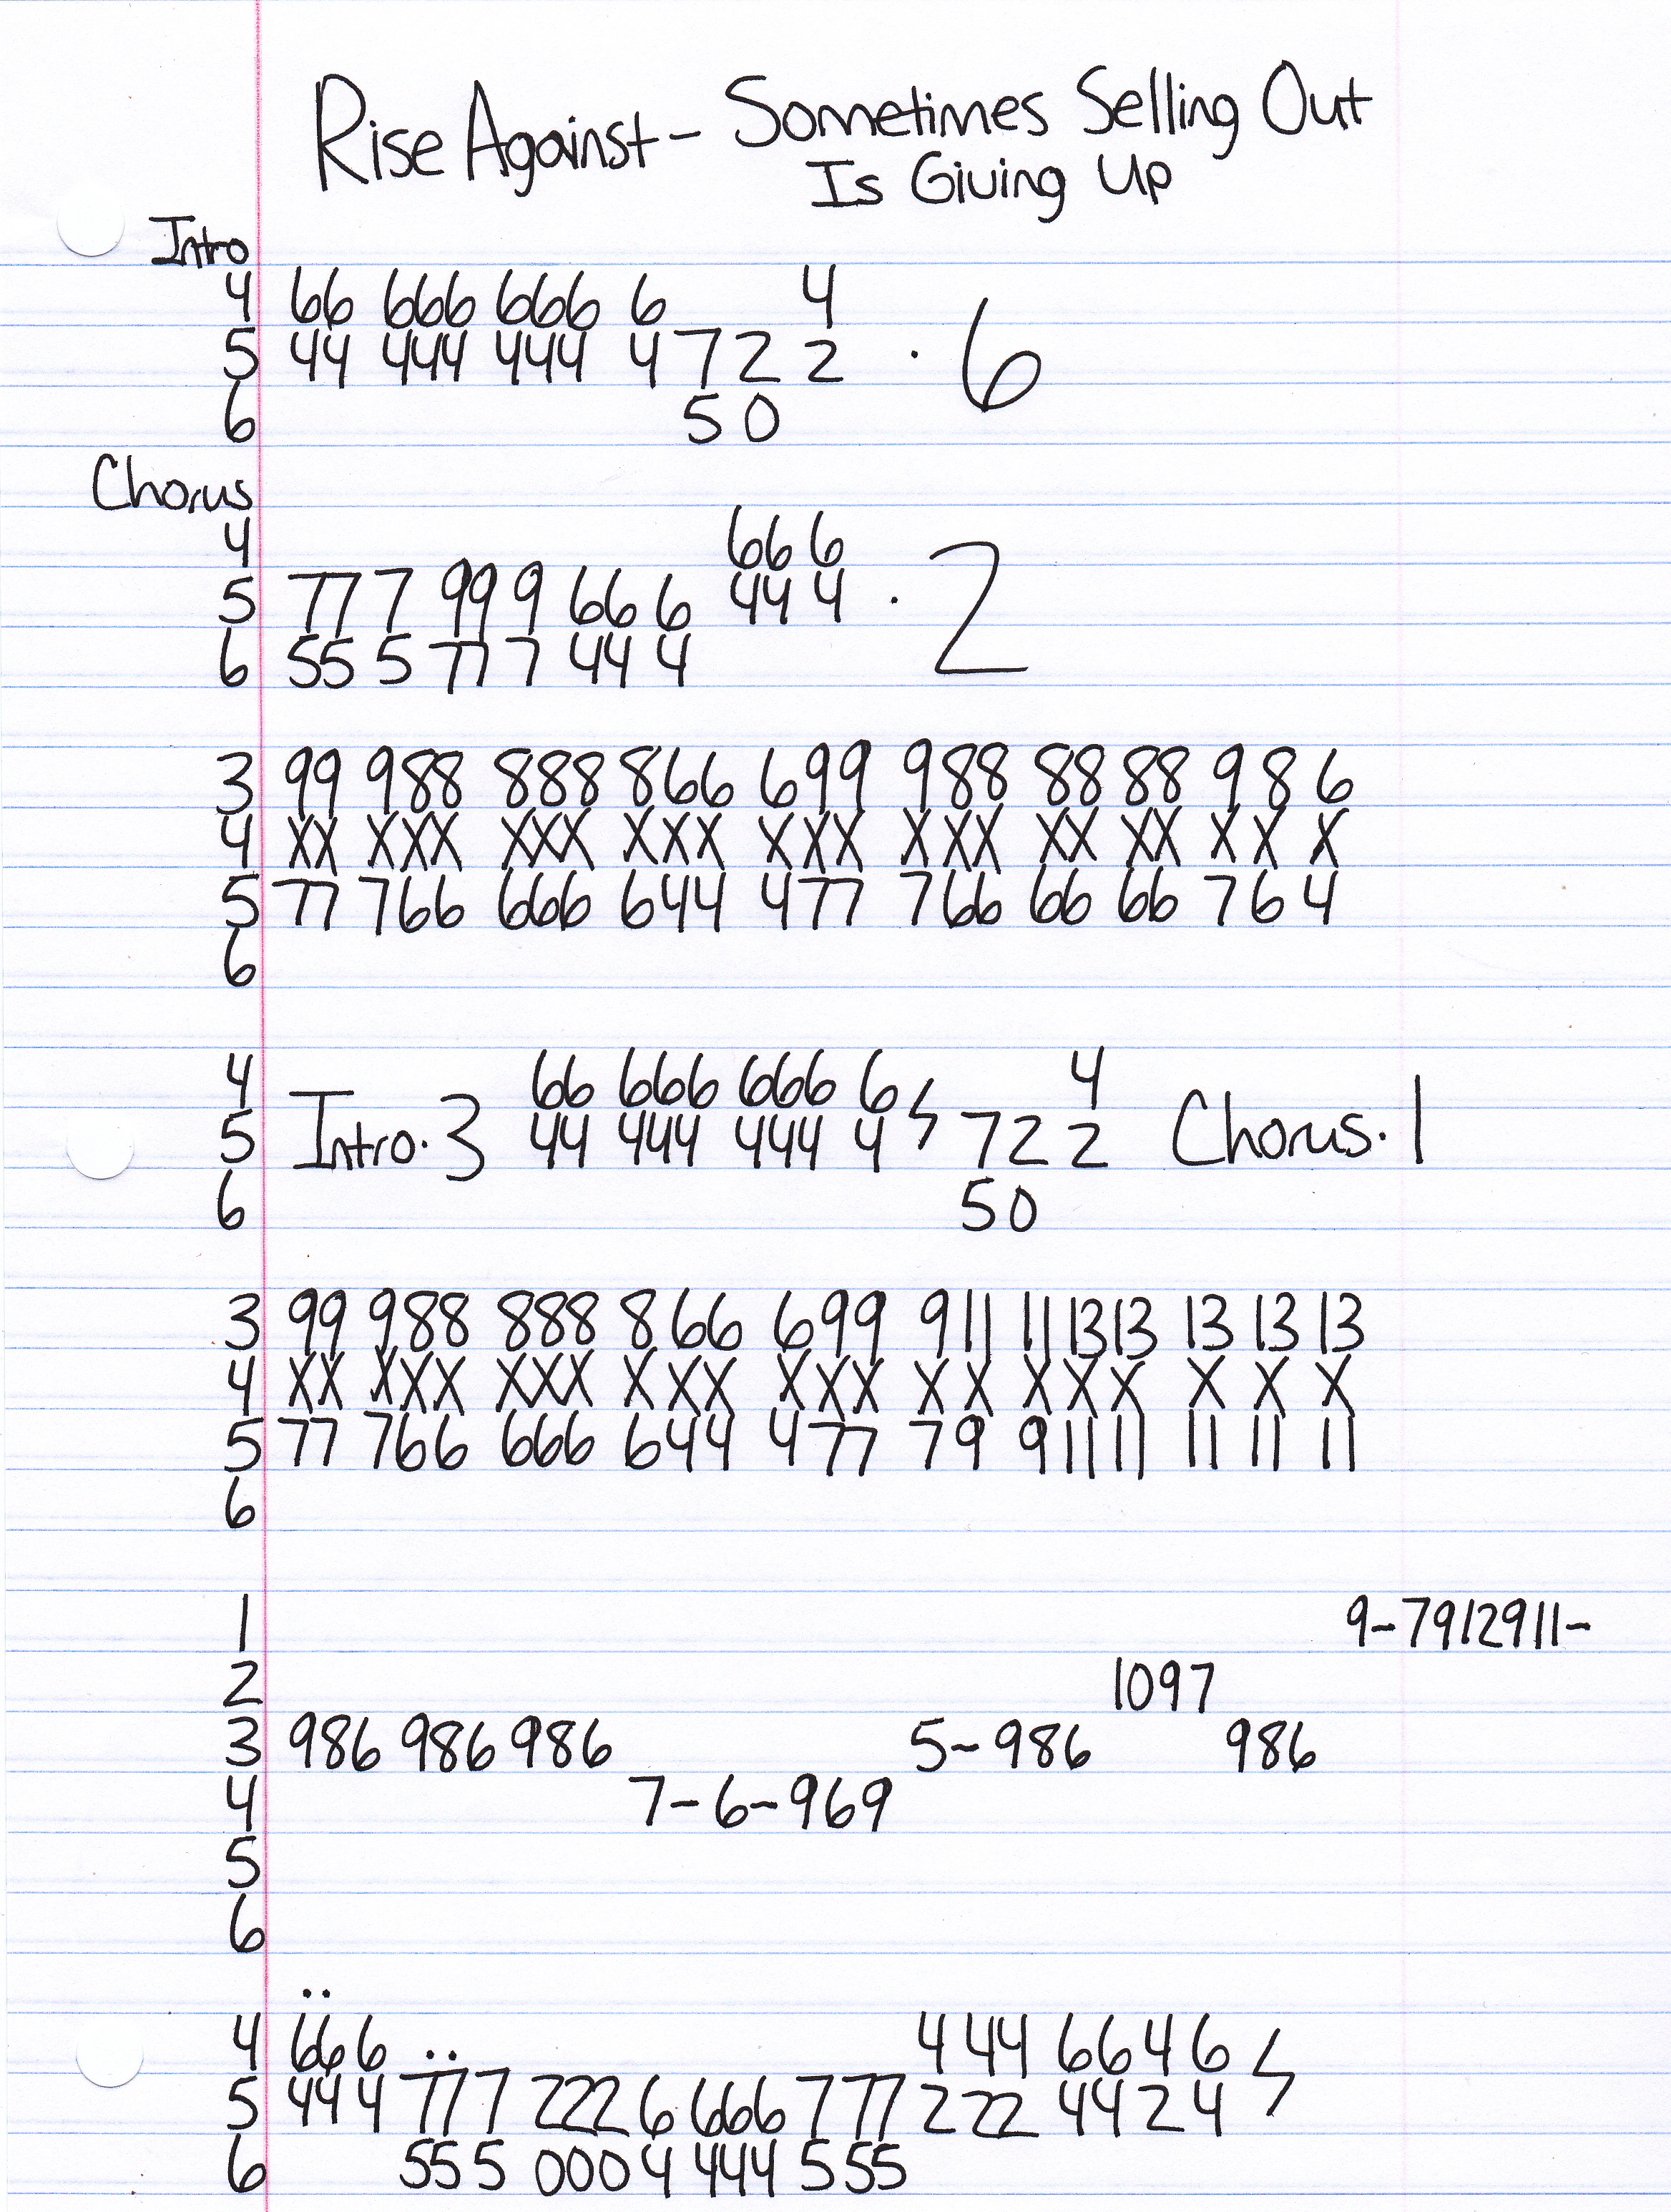 Rise Against - Sometimes Selling Out
Is Giving Up
Intro
4 66 666 666 6 4
5 44 444 444 4 7 2 2 · 6
6 5 0
Chorus
4 66 6
5 77 7 99 9 66 6 44 4 · 2
6 55 5 77 7 44 4
3 99 988 888 866 699 988 88 88 9 8 6
4 XX XXX XXX XXX XXX XXX XX XX X X X
5 77 766 666 644 477 766 66 66 7 6 4
6
4 66 666 666 6 4
5 Intro · 3 44 444 444 4 7 2 2 Chorus · 1
6 5 0
3 99 988 888 866 699 9 11 11 13 13 13 13 13
4 XX XXX XXX XXX XXX X X X X X X X X
5 77 766 666 644 477 7 9 9 11 11 11 11 11
6
1 9-7912911-
2 1097
3 986 986 986 5-986 986
4 7-6-969
5
6
4 666 4 44 66 4 6
5 444 777 222 6 666 7 77 2 22 44 2 4
6 555 000 4 444 5 55